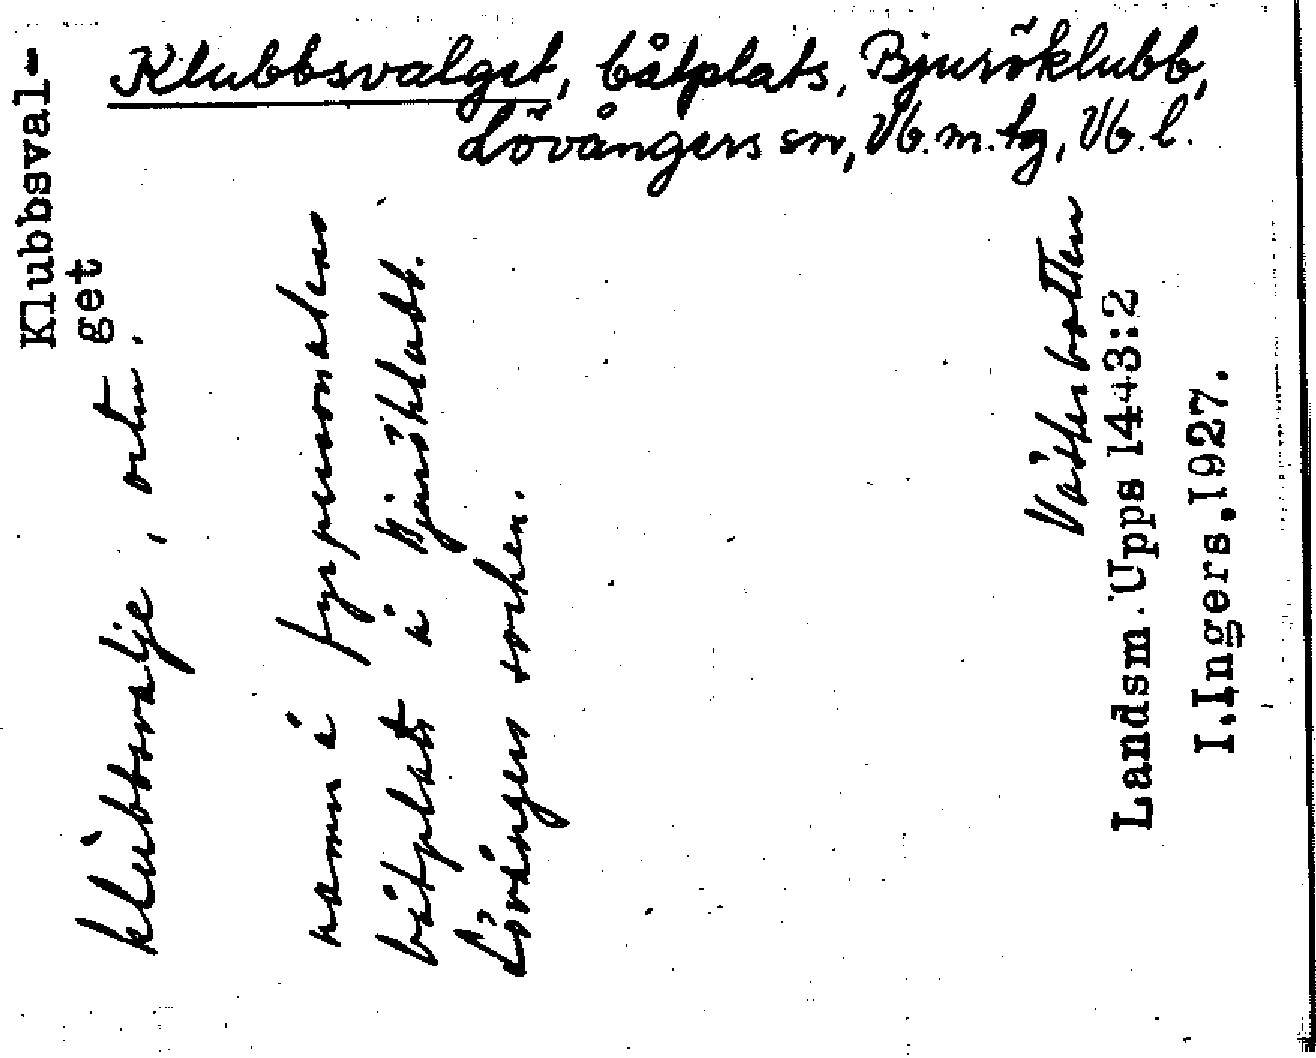 Klubbsvalget, båtplats, Bjurõklubb,
Lövångers sn, Vb.m.tg, Vb.l.
Klubbsval-
get
klùbbsvalje, ortn.
namn å fyrpersonalens
båtplats å Bjuröklubb.
Lövånger socken.
Västerbotten
Landsm.Upps 1443:2
I.Ingers,1927.